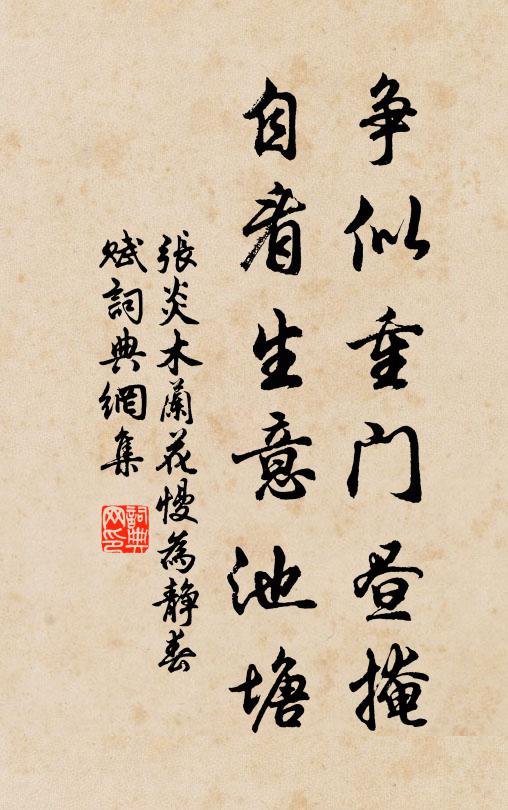 争似重門昼掩
自看生意池塘
張炎木蘭花慢為静春
賦詞典網集
詞典
网印